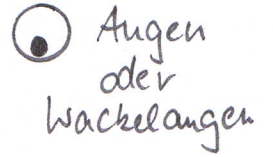 Augen
oder
Wackelaugen